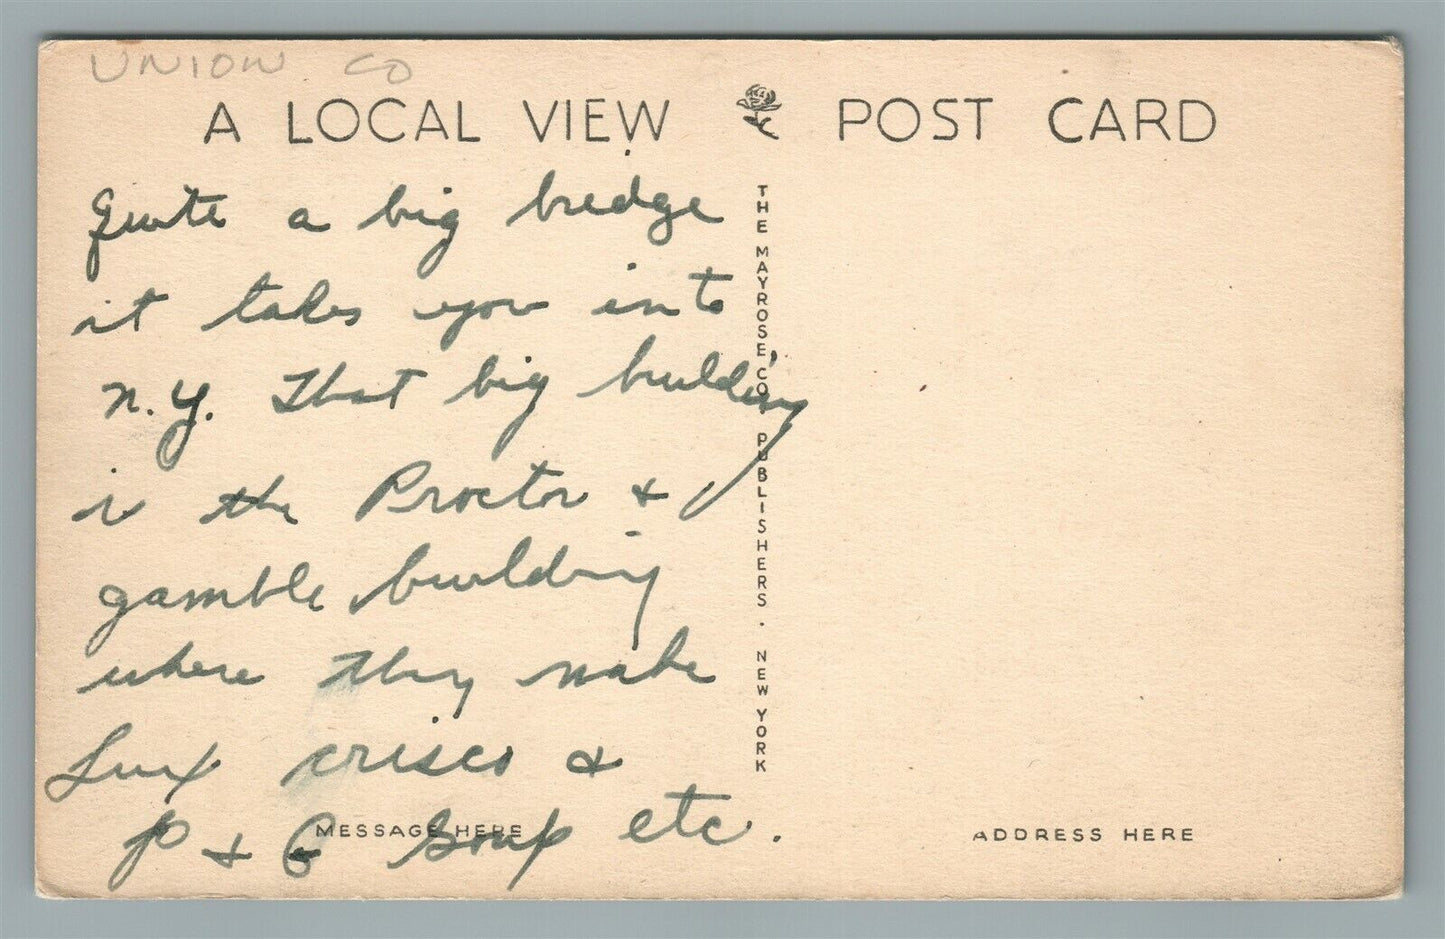 UNION CO
A LOCAL VIEW POST CARD
Quite a big bredge
it takes you into
N.Y. That big building
is the Proctor &
gamble building
where they make
Lux crisco &
P & G Soap etc.
MESSAGE HERE
THE MAYROSE CO., PUBLISHERS. NEW YORK
ADDRESS HERE